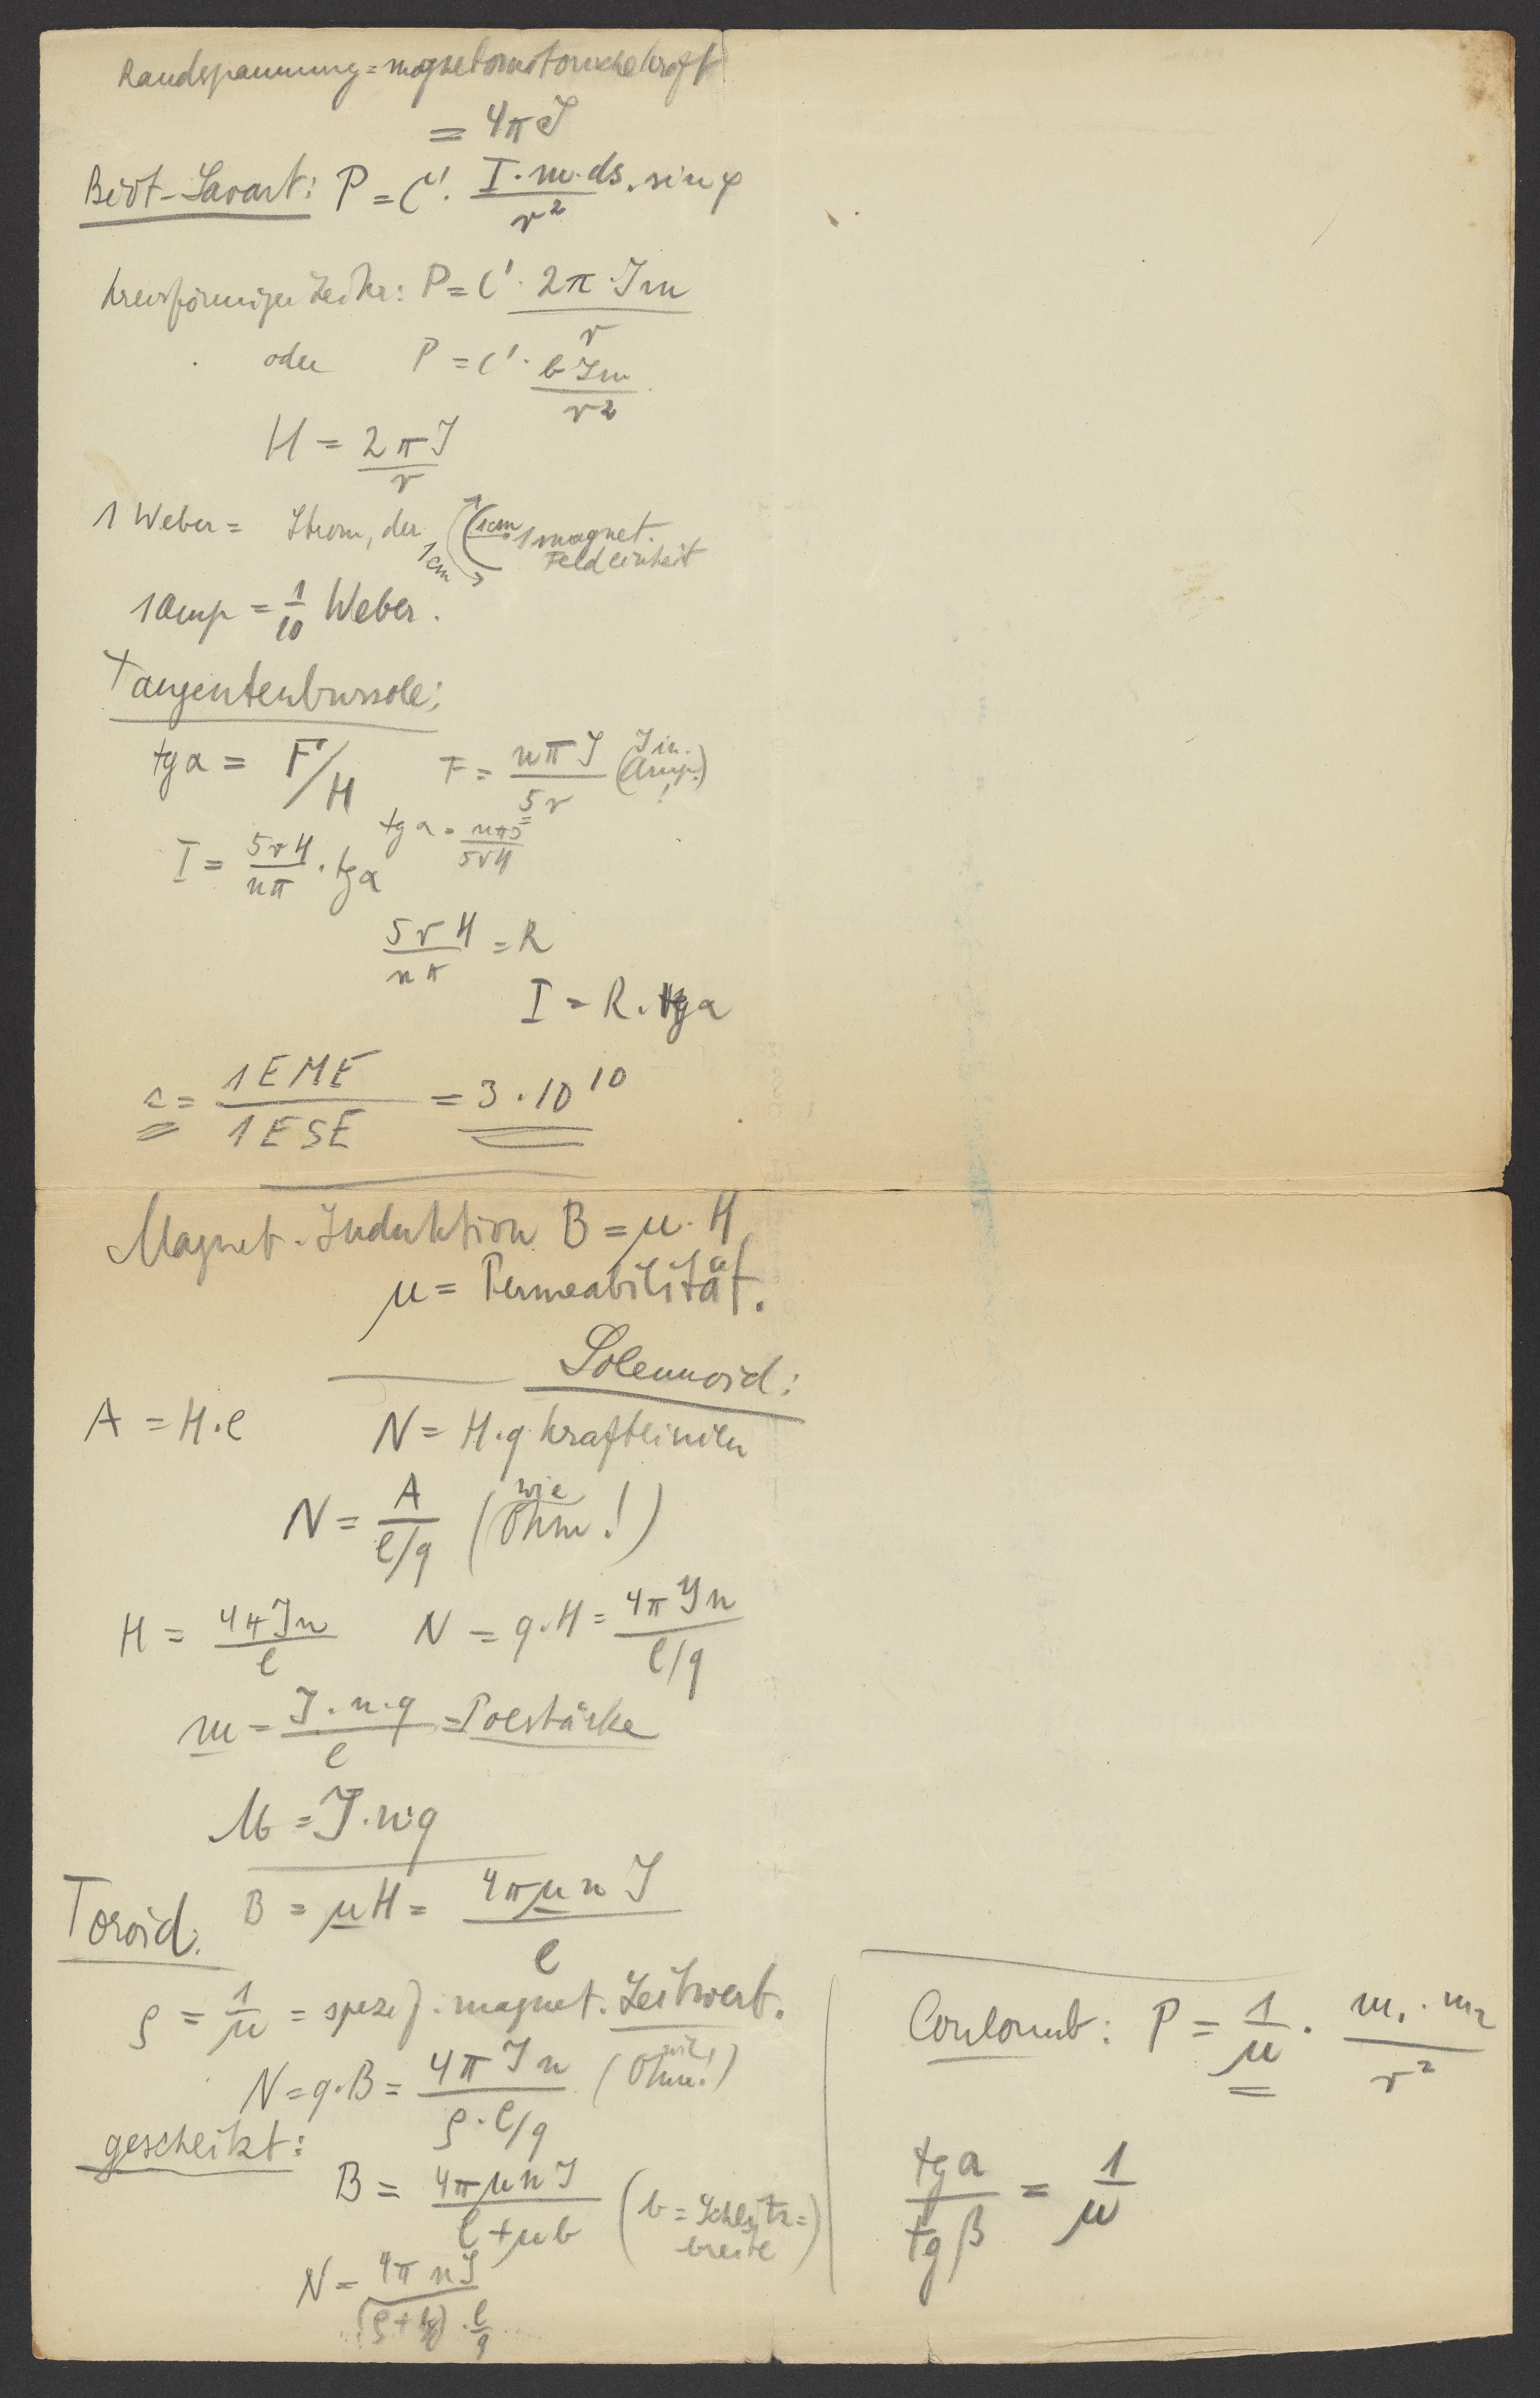 Randspannung = magnetomotorische Kraft
= 4πJ
Biot-Savart: P = C'. I·m·ds/r² . sin φ
kreisförmiger Leiter: P = C' · 2π·Jm/r
oder P = C' · bJm/r²
H = 2πJ/r
1 Weber = Strom, der 1cm 1cm 1 magnet. Feldeinheit
1 Amp = 1/10 Weber.
Tangentenbussole:
tg α = F/H F = nπJ/5r (J in Amp.) !
tg α = nπJ/5rH
I = 5rH/nπ . tg α
5rH/nπ = R
I = R . tg α
c = 1 EME/1 ESE = 3 · 10¹⁰
Magnet. Induktion B = μ · H
μ = Permeabilität.
Solennoid:
A = H·l N = H·q Kraftlinien
N = A/l/q (wie Ohm!)
H = 4πJn/l N = q·H = 4πJn/l/q
m = J·n·q/l = Polstärke
M = J·n·q
Toroid: B = μH = 4πμnJ/l
ρ = 1/μ = spezif. magnet. Leitwert.
N = q·B = 4πJn/ρ·l/q (wie Ohm!)
geschlitzt:
B = 4πμnJ/l+μb (b = Schlitz=breite)
N = 4πnJ/(ρ+ ) · l/q
Coulomb: P = 1/μ · m₁·m₂/r²
tg α/tg β = 1/μ